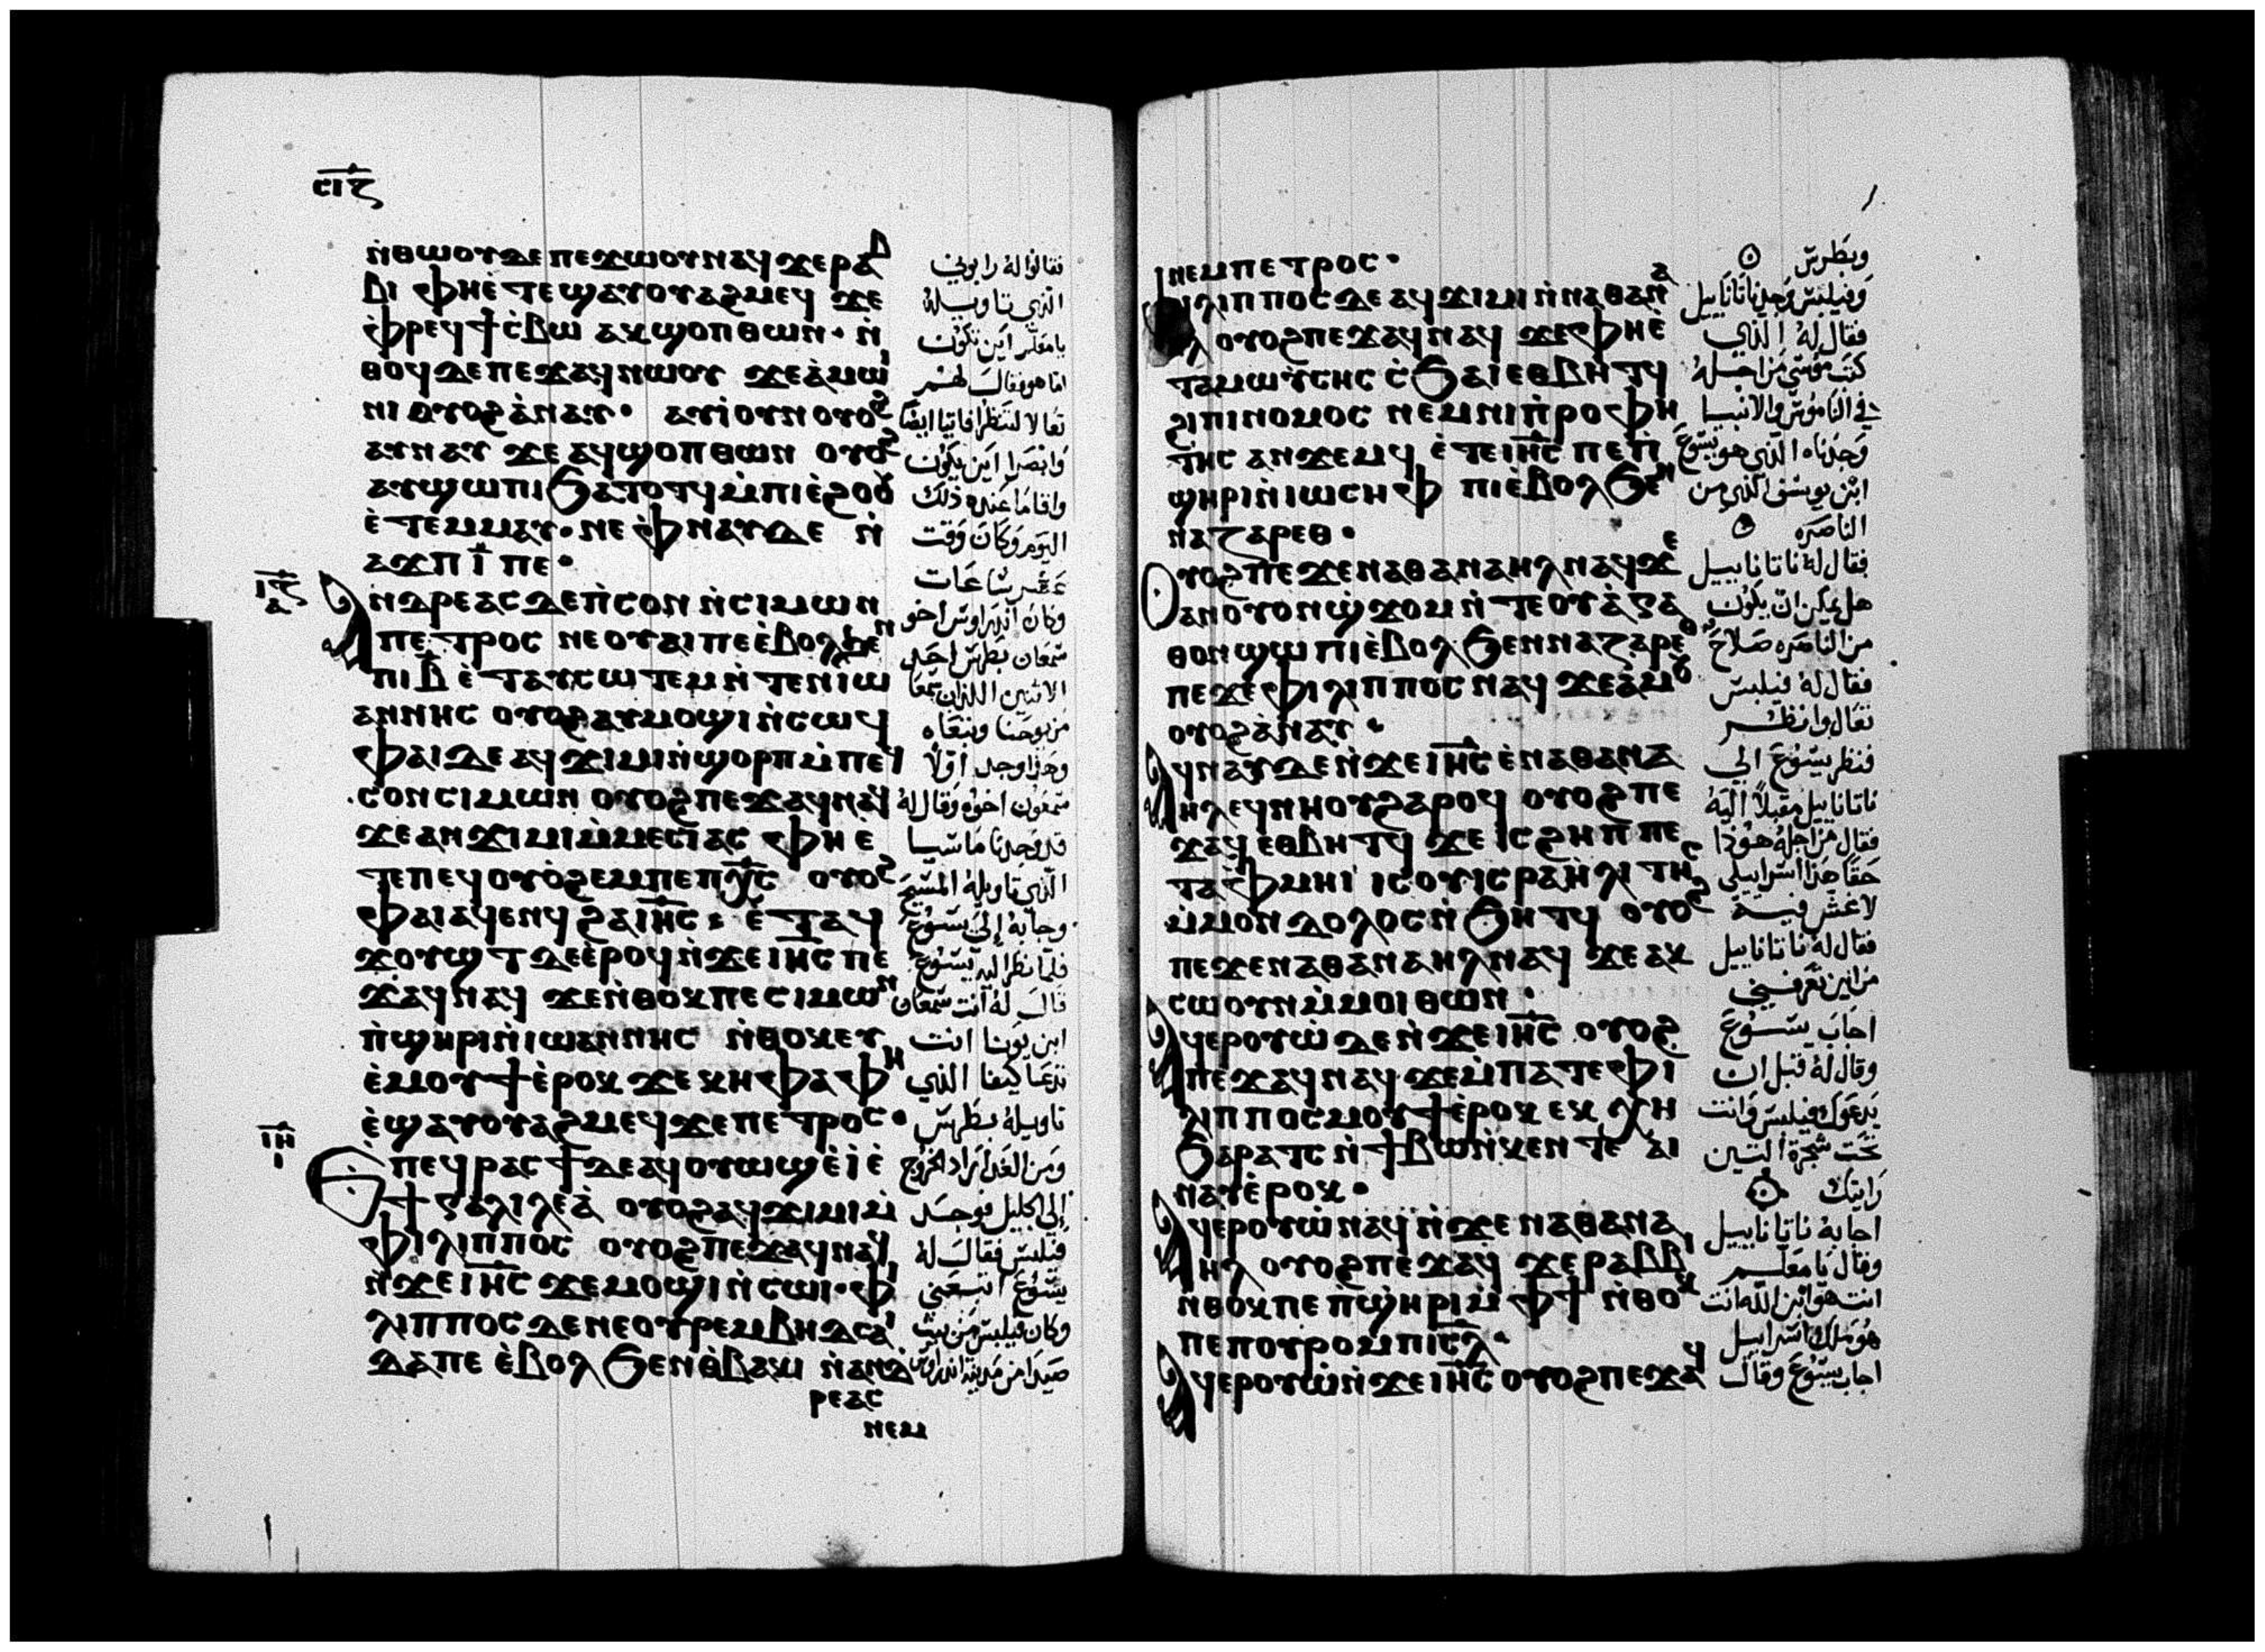 ⲥⲓⲍ
ⲛ̀ⲑⲱⲟⲩⲇⲉ ⲡⲉϫⲱⲟⲩⲛⲁϥ ϫⲉⲣⲁⲃ
ⲃⲓ ⲫⲏⲉ̀ⲧⲉϣⲁⲩⲟⲩⲁϩⲙⲉϥ ϫⲉ
ⲫ̀ⲣⲉϥϯⲥ̀ⲃⲱ ⲁⲕϣⲟⲡⲑⲱⲛ· ⲛ̀
ⲑⲟϥⲇⲉⲡⲉϫⲁϥⲛⲱⲟⲩ ϫⲉⲁ̀ⲙⲱ
ⲛⲓ ⲟⲩⲟϩⲁ̀ⲛⲁⲩ· ⲁⲩⲓ̀ⲟⲩⲛⲟⲩⲟϩ
ⲁⲩⲛⲁⲩ ϫⲉ ⲁϥϣⲟⲡⲑⲱⲛ ⲟⲩⲟϩ
ⲁⲩϣⲱⲡⲓϧⲁⲧⲟⲧϥⲙ̀ⲡⲓⲉ̀ϩⲟⲟⲩ
ⲉ̀ⲧⲉⲙⲙⲁⲩ· ⲛⲉ ⲫ̀ⲛⲁⲩⲇⲉ ⲛ̀
ⲁϫⲡ ⲓ̅ ⲡⲉ·
ⲓⲍ
ⲁ
ⲁⲛⲇⲣⲉⲁⲥⲇⲉⲡ̀ⲥⲟⲛ ⲛ̀ⲥⲓⲙⲱⲛ
ⲡⲉⲧⲣⲟⲥ ⲛⲉⲟⲩⲁⲓⲡⲉⲉ̀ⲃⲟⲗϧⲉⲛ
ⲡⲓⲃ̅ ⲉ̀ⲧⲁⲩⲥⲱⲧⲉⲙⲛ̀ⲧⲉⲛⲓⲱ
ⲁⲛⲛⲏⲥ ⲟⲩⲟϩⲁⲩⲙⲟϣⲓⲛ̀ⲥⲱϥ
ⲫⲁⲓⲇⲉⲁϥϫⲓⲙⲓⲛ̀ϣⲟⲣⲡⲙ̀ⲡⲉϥ
ⲥⲟⲛⲥⲓⲙⲱⲛ ⲟⲩⲟϩⲡⲉϫⲁϥⲛⲁϥ
ϫⲉⲁⲛϫⲓⲙⲓⲙ̀ⲙⲉⲥⲓⲁⲥ ⲫⲏⲉ̀
ⲧⲉⲡⲉϥⲟⲩⲟϩⲉⲙⲡⲉⲡⲭ̅ⲥ̅ ⲟⲩⲟϩ
ⲫⲁⲓⲁϥⲉⲛϥ ϩⲁⲓⲏ̅ⲥ̅· ⲉ̀ⲧⲁϥ
ϫⲟⲩϣⲧⲇⲉⲉ̀ⲣⲟϥⲛ̀ϫⲉⲓⲏ̅ⲥ̅ ⲡⲉ
ϫⲁϥⲛⲁϥ ϫⲉⲛ̀ⲑⲟⲕⲡⲉⲥⲓⲙⲱⲛ
ⲡ̀ϣⲏⲣⲓⲛ̀ⲓⲱⲁⲛⲛⲏⲥ ⲛ̀ⲑⲟⲕⲉⲩ
ⲉ̀ⲙⲟⲩϯⲉ̀ⲣⲟⲕ ϫⲉⲕⲏⲫⲁ ⲫⲏ
ⲉ̀ϣⲁⲩⲟⲩⲁϩⲙⲉϥϫⲉⲡⲉⲧⲣⲟⲥ·
ⲓⲏ
ⲓ
ⲉⲡⲉϥⲣⲁⲥϯⲇⲉⲁϥⲟⲩⲱϣⲉ̀ⲓ̀ ⲉ̀
ϯⲅⲁⲗⲓⲗⲉⲁ̀ ⲟⲩⲟϩⲁϥϫⲓⲙⲓⲙ̀
ⲫⲓⲗⲓⲡⲡⲟⲥ ⲟⲩⲟϩⲡⲉϫⲁϥⲛⲁϥ
ⲛ̀ϫⲉⲓⲏ̅ⲥ̅ ϫⲉⲙⲟϣⲓⲛ̀ⲥⲱⲓ· ⲫⲓ
ⲗⲓⲡⲡⲟⲥⲇⲉⲛⲉⲟⲩⲣⲉⲙⲃⲏⲇⲥⲁⲓ
ⲇⲁⲡⲉ ⲉ̀ⲃⲟⲗϧⲉⲛⲑ̀ⲃⲁⲕⲓ ⲛ̀ⲁⲛⲇ
ⲣⲉⲁⲥ
ⲛⲉⲙ
فقالوا له رابوني
الذي تاويله
يا معلم اين تكون
اما هو فقال لهم
تعالا لتنظرا فاتيا ايضا
وابصرا اين يكون
واقاما عنده ذلك
اليوم وكان وقت
عشر ساعات
وكان اندراوس اخو
سمعان بطرس احد
الاثنين اللذان سمعا
من يوحنا وتبعاه
وهذا وجد اولا
سمعون اخوه وقال له
قد وجدنا ماسيا
الذي تاويله المسيح
وجابه الى يسوع
فلما نظر اليه يسوع
قال له انت سمعان
ابن يونا انت
تدعا كيفا الذي
تاويله بطرس
ومن الغد اراد الخروج
الى الجليل فوجد
فيلبس فقال له
يسوع اتبعني
وكان فيلبس من بيت
صيدا من مدينة اندراوس
ⲛⲉⲙⲡⲉⲧⲣⲟⲥ·
ⲫⲓⲗⲓⲡⲡⲟⲥⲇⲉⲁϥϫⲓⲙⲓⲛ̀ⲛⲁⲑⲁⲛⲁ
ⲏⲗ ⲟⲩⲟϩⲡⲉϫⲁϥⲛⲁϥ ϫⲉⲫⲏⲉ̀
ⲧⲁⲙⲱⲩ̀ⲥⲏⲥ ⲥ̀ϧⲁⲓⲉⲑⲃⲏⲧϥ
ϩⲓⲡⲓⲛⲟⲙⲟⲥ ⲛⲉⲙⲛⲓⲡ̀ⲣⲟⲫⲏ
ⲧⲏⲥ ⲁⲛϫⲉⲙϥ ⲉ̀ⲧⲉⲓⲏ̅ⲥ̅ ⲡⲉⲡ̀
ϣⲏⲣⲓⲛ̀ⲓⲱⲥⲏⲫ ⲡⲓⲉ̀ⲃⲟⲗϧⲉⲛ
ⲛⲁⲍⲁⲣⲉⲑ·
ⲟⲩⲟϩⲡⲉϫⲉⲛⲁⲑⲁⲛⲁⲏⲗⲛⲁϥϫⲉ
ⲁⲛⲟⲩⲟⲛϣ̀ϫⲟⲙⲛ̀ⲧⲉⲟⲩⲁ̀ⲅⲁ
ⲑⲟⲛϣⲱⲡⲓⲉ̀ⲃⲟⲗϧⲉⲛⲛⲁⲍⲁⲣⲉⲑ
ⲡⲉϫⲉⲫⲓⲗⲓⲡⲡⲟⲥ ⲛⲁϥ ϫⲉⲁ̀ⲙⲟⲩ
ⲟⲩⲟϩⲁ̀ⲛⲁⲩ·
ⲁϥⲛⲁⲩⲇⲉⲛ̀ϫⲉⲓⲏ̅ⲥ̅ ⲉ̀ⲛⲁⲑⲁⲛⲁ
ⲏⲗⲉϥⲛⲏⲟⲩϩⲁⲣⲟϥ ⲟⲩⲟϩⲡⲉ
ϫⲁϥ ⲉⲑⲃⲏⲧϥ ϫⲉ ⲓⲥϩⲏⲡⲡⲉ
ⲧⲁⲫ̀ⲙⲏⲓ ⲓⲥⲟⲩⲓⲥⲣⲁⲏ̀ⲗⲓⲧⲏⲥ
ⲙ̀ⲙⲟⲛⲇⲟⲗⲟⲥⲛ̀ϧⲏⲧϥ ⲟⲩⲟϩ
ⲡⲉϫⲉⲛⲁⲑⲁⲛⲁⲏⲗⲛⲁϥ ϫⲉⲁⲕ
ⲥⲱⲟⲩⲛⲙ̀ⲙⲟⲓⲑⲱⲛ·
ⲁϥⲉⲣⲟⲩⲱ̀ⲇⲉⲛ̀ϫⲉⲓⲏ̅ⲥ̅ ⲟⲩⲟϩ
ⲡⲉϫⲁϥⲛⲁϥ ϫⲉⲙ̀ⲡⲁⲧⲉⲫⲓ
ⲗⲓⲡⲡⲟⲥⲙⲟⲩϯⲉ̀ⲣⲟⲕ ⲉⲕⲭⲏ
ϧⲁⲣⲁⲧⲥ ⲛ̀ϯⲃⲱⲛ̀ⲕⲉⲛⲧⲉ ⲁⲓ
ⲛⲁⲩⲉ̀ⲣⲟⲕ·
ⲁϥⲉⲣⲟⲩⲱ̀ⲛⲁϥⲛ̀ϫⲉⲛⲁⲑⲁⲛⲁ
ⲏⲗ ⲟⲩⲟϩⲡⲉϫⲁϥ ϫⲉⲣⲁⲃⲃⲓ
ⲛ̀ⲑⲟⲕⲡⲉⲡ̀ϣⲏⲣⲓⲙ̀ⲫϯ ⲛ̀ⲑⲟⲕ
ⲡⲉⲡⲟⲩⲣⲟⲙⲡⲓⲥ̅ⲗ̅·
ⲁϥⲉⲣⲟⲩⲱ̀ⲛ̀ϫⲉⲓⲏ̅ⲥ̅ ⲟⲩⲟϩⲡⲉϫⲁϥ
وبطرس
وفيلبس وجد ناتانابيل
فقال له الذي
كتب موسى من اجله
في الناموس والانبيا
وجدناه الذي هو يسوع
ابن يوسف الذي من
الناصره
فقال له ناتانابيل
هل يمكن ان يكون
من الناصره صلاح
فقال له فيلبس
تعال وانظر
فنظر يسوع الى
ناتانابيل مقبلا اليه
فقال من اجله هوذا
حقا هذا اسرابيلي
لا غش فيه
فقال له ناتانابيل
من اين تعرفني
اجاب يسوع
وقال له قبل ان
يدعوك فيلبس وانت
تحت شجرة التين
رايتك
اجابه ناتانابيل
وقال يا معلم
انت هو ابن الله انت
هو ملك اسرابيل
اجاب يسوع وقال